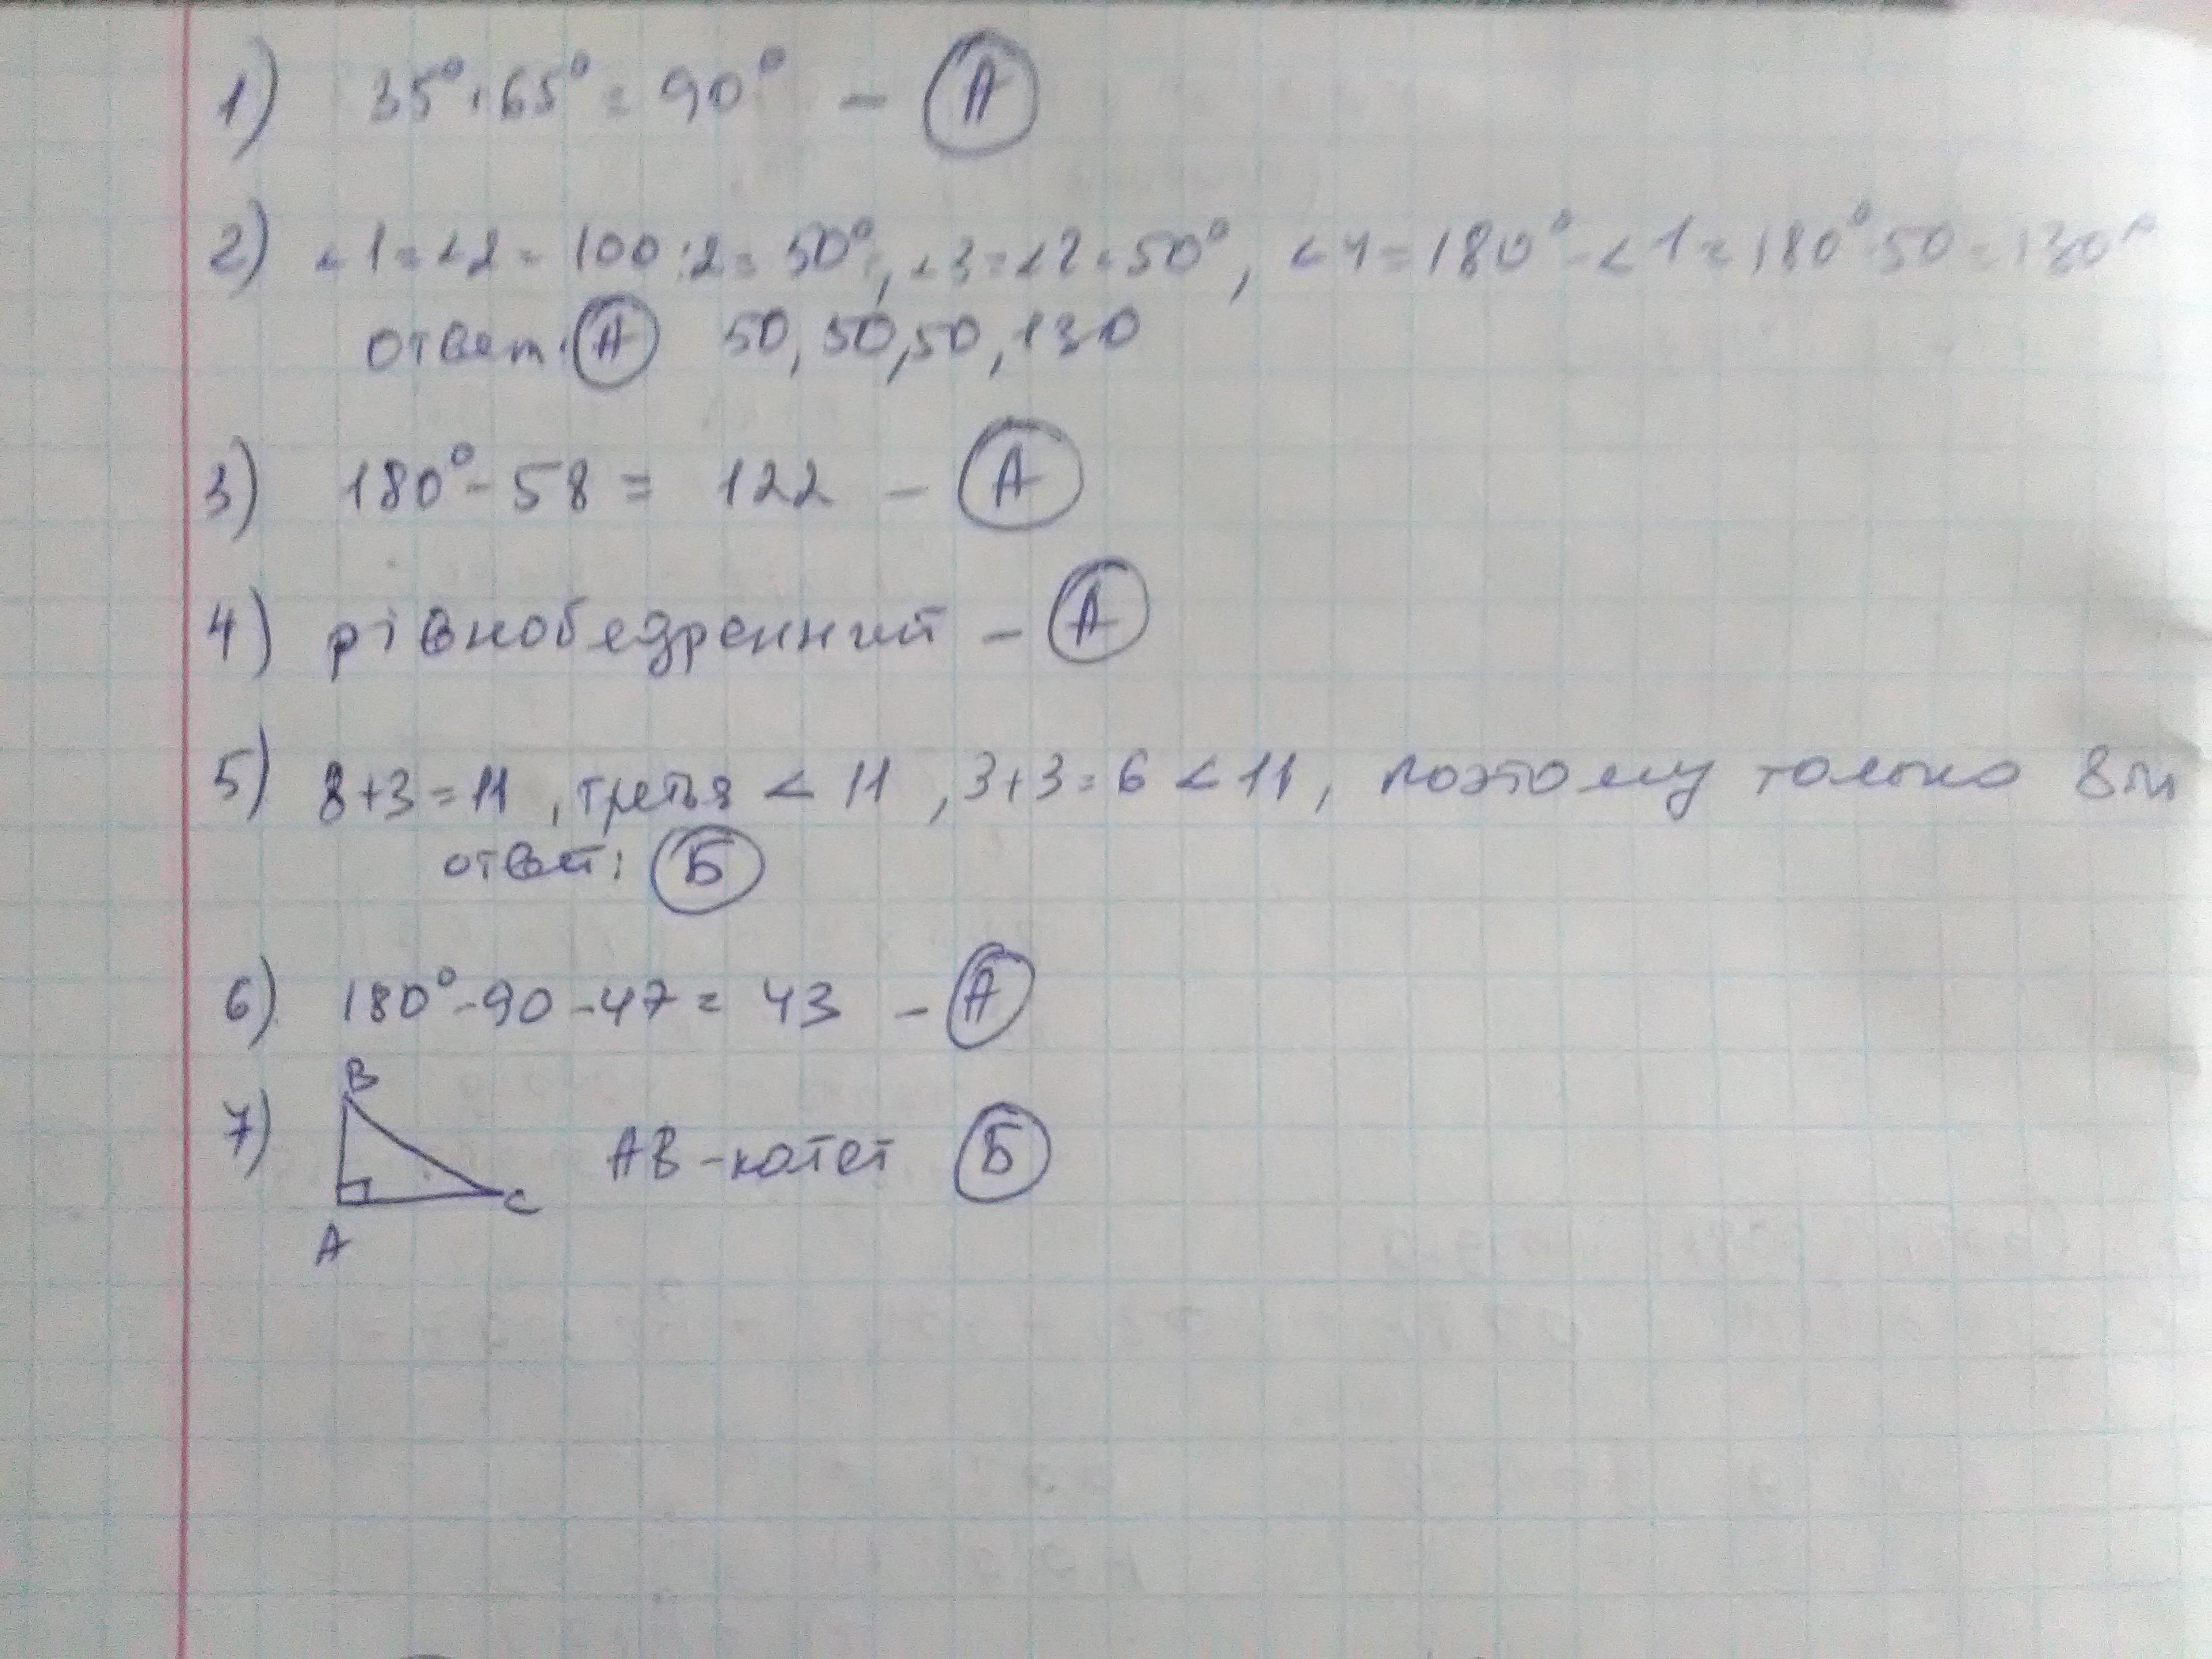 1) 35° + 65° = 90° – А
2) ∠1 = ∠2 = 100 : 2 = 50°, ∠3 = ∠2 = 50°, ∠4 = 180° - ∠1 = 180° - 50 = 130°
ответ: А 50, 50, 50, 130
3) 180° - 58 = 122 – А
4) рівнобедренний – А
5) 8+3=11, третья < 11, 3+3=6 < 11, поэтому только 8м
ответ: Б
6) 180° - 90 - 47 = 43 – А
B
7) AB - катет Б
C
A